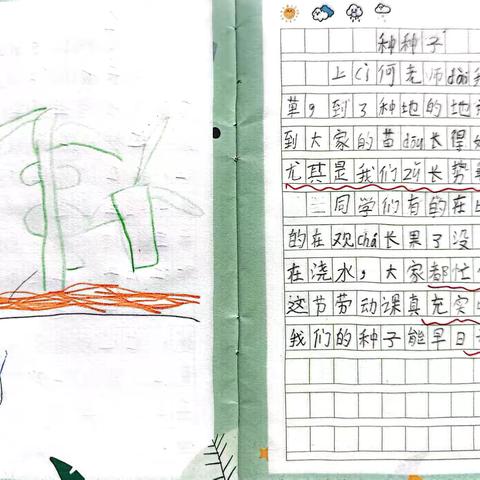 种种子
上cì何老师dài我
草，到了种地的地
到大家的苗dōu长得
尤其是我们zǔ长势
同学们有的在
的在观chá长果了没
在浇水，大家都忙
这节劳动课真充实
我们的种子能早日